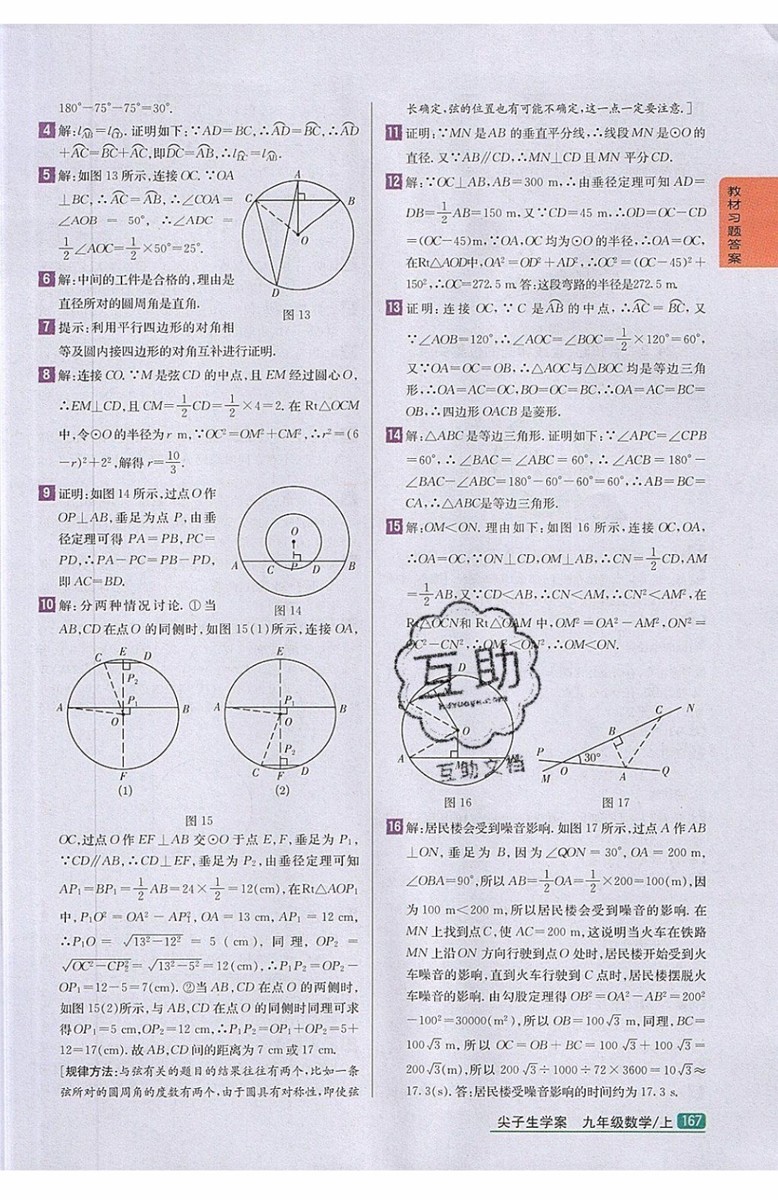 180°-75°-75°=30°.
4 解:l⌒AB=l⌒CD. 证明如下:∵AD=BC,∴⌒AD=⌒BC,∴⌒AD
+⌒AC=⌒BC+⌒AC,即⌒DC=⌒AB,∴l⌒DC=l⌒AB.
5 解:如图 13 所示,连接 OC. ∵OA
⊥BC,∴⌒AC=⌒AB,∴∠COA=
∠AOB = 50°, ∴∠ADC =
1/2∠AOC=1/2×50°=25°.
A
C
B
O
D
图 13
6 解:中间的工件是合格的,理由是
直径所对的圆周角是直角.
7 提示:利用平行四边形的对角相
等及圆内接四边形的对角互补进行证明.
8 解:连接 CO. ∵M 是弦 CD 的中点,且 EM 经过圆心 O,
∴EM⊥CD,且 CM=1/2CD=1/2×4=2. 在 Rt△OCM
中,令⊙O的半径为 r m,∵OC²=OM²+CM²,∴r²=(6
-r)²+2²,解得 r=10/3.
9 证明:如图 14 所示,过点 O 作
OP⊥AB,垂足为点 P,由垂
径定理可得 PA=PB,PC=
PD,∴PA-PC=PB-PD,
即 AC=BD.
O
A C P D B
图 14
10 解:分两种情况讨论. ①当
AB,CD 在点 O 的同侧时,如图 15(1)所示,连接 OA,
E
C D
P₂
A P₁ B
O
F
(1)
E
A P₁ B
O
P₂
C D
F
(2)
图 15
OC,过点 O 作 EF⊥AB 交⊙O 于点 E,F,垂足为 P₁,
∵CD∥AB,∴CD⊥EF,垂足为 P₂,由垂径定理可知
AP₁=BP₁=1/2AB=24×1/2=12(cm),在Rt△AOP₁
中,P₁O²=OA²-AP₁²,OA=13 cm,AP₁=12 cm,
∴P₁O=√13²-12²=5(cm),同理,OP₂=
√OC²-CP₂²=√13²-5²=12(cm),∴P₁P₂=OP₂-
OP₁=12-5=7(cm). ②当 AB,CD 在点 O 的两侧时,
如图 15(2)所示,与 AB,CD 在点 O 的同侧时同理可求
得OP₁=5 cm,OP₂=12 cm,∴P₁P₂=OP₁+OP₂=5+
12=17(cm). 故 AB,CD 间的距离为 7 cm 或 17 cm.
[规律方法:与弦有关的题目的结果往往有两个,比如一条
弦所对的圆周角的度数有两个,由于圆具有对称性,即使弦
长确定,弦的位置也有可能不确定,这一点一定要注意.]
11 证明:∵MN 是 AB 的垂直平分线,∴线段 MN 是⊙O的
直径. 又∵AB∥CD,∴MN⊥CD 且 MN 平分 CD.
12 解:∵OC⊥AB,AB=300 m,∴由垂径定理可知 AD=
DB=1/2AB=150 m,又∵CD=45 m,∴OD=OC-CD
=(OC-45)m,∵OA,OC 均为⊙O 的半径,∴OA=OC,
在Rt△AOD中,OA²=OD²+AD²,∴OC²=(OC-45)²+
150²,∴OC=272.5 m. 答:这段弯路的半径是272.5 m.
13 证明:连接 OC,∵C 是⌒AB的中点,∴⌒AC=⌒BC,又
∵∠AOB=120°,∴∠AOC=∠BOC=1/2×120°=60°,
又∵OA=OC=OB,∴△AOC与△BOC 均是等边三角
形,∴OA=AC=OC,BO=OC=BC,∴OA=AC=BC=
OB,∴四边形 OACB 是菱形.
14 解:△ABC 是等边三角形. 证明如下:∵∠APC=∠CPB
=60°,∴∠BAC=∠ABC=60°,∴∠ACB=180°-
∠BAC-∠ABC=180°-60°-60°=60°,∴AB=BC=
CA,∴△ABC是等边三角形.
15 解:OM<ON. 理由如下:如图 16 所示,连接 OC,OA,
∴OA=OC,∵ON⊥CD,OM⊥AB,∴CN=1/2CD,AM
=1/2AB,又∵CD<AB,∴CN<AM,∴CN²<AM²,在
Rt△OCN和 Rt△OAM 中,OM²=OA²-AM²,ON²=
OC²-CN²,∴OM²<ON²,∴OM<ON.
互助
hdzuoye.com
互助文档
D
O
A
图 16
C N
B
P 30°
M O A Q
图 17
16 解:居民楼会受到噪音影响. 如图 17 所示,过点 A 作 AB
⊥ON,垂足为 B,因为∠QON=30°,OA=200 m,
∠OBA=90°,所以 AB=1/2OA=1/2×200=100(m),因
为 100 m<200 m,所以居民楼会受到噪音的影响. 在
MN 上找到点 C,使 AC=200 m,这说明当火车在铁路
MN 上沿 ON 方向行驶到点 O 处时,居民楼开始受到火
车噪音的影响,直到火车行驶到 C 点时,居民楼摆脱火
车噪音的影响. 由勾股定理得 OB²=OA²-AB²=200²
-100²=30000(m²),所以 OB=100√3 m,同理,BC=
100√3 m,所以 OC=OB+BC=100√3+100√3=
200√3(m),所以 200√3÷1000÷72×3600=10√3≈
17.3(s). 答:居民楼受噪音影响的时间约为 17.3 s.
教材习题答案
尖子生学案 九年级数学/上 167